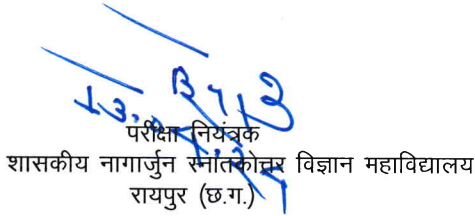 परीक्षा नियंत्रक
शासकीय नागार्जुन स्नातकोत्तर विज्ञान महाविद्यालय
रायपुर (छ.ग.)